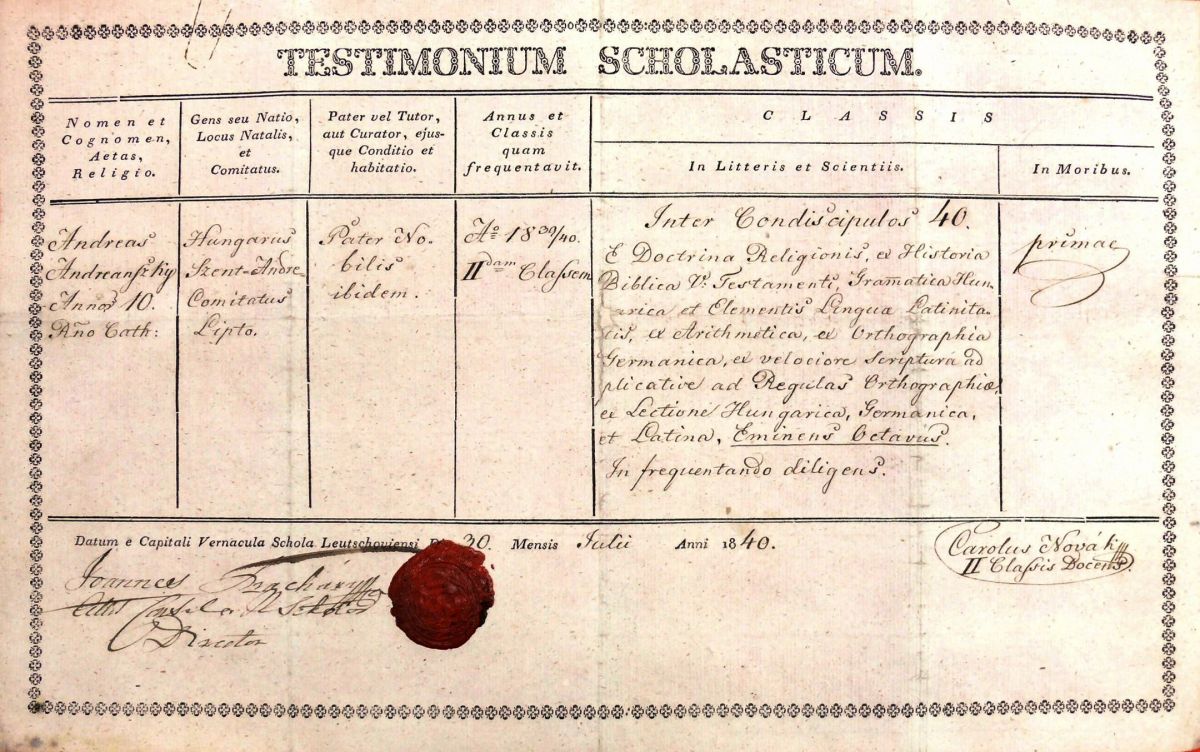 TESTIMONIUM SCHOLASTICUM.
Nomen et
Cognomen,
Aetas,
Religio.
Gens seu Natio,
Locus Natalis,
et
Comitatus.
Pater vel Tutor,
aut Curator, ejus-
que Conditio et
habitatio.
Annus et
Classis
quam
frequentavit.
CLASSIS
In Litteris et Scientiis.
In Moribus.
Andreas
Andreanszky
Annor 10.
Rño Cath:
Hungarus
Szent-Andre
Comitatus
Lipto.
Pater No-
bilis
ibidem.
Aº 1839/40.
IIdam Classem
Inter Condiscipulos 40.
E Doctrina Religionis, ex Historia
Biblica V. Testamenti, Gramatica Hun-
arica et Elementis Lingua Latinita-
tis, ex Arithmetica, ex Orthographia
Germanica, ex velociore scriptura ad
plicative ad Regulas Orthographiæ,
ex Lectione Hungarica, Germanica,
et Latina, Eminens Octavus.
In frequentando diligens.
primae
Datum e Capitali Vernacula Schola Leutschoviensi 30. Mensis Julii Anni 1840.
Joannes
Director
Carolus Novák
II Classis Docens.